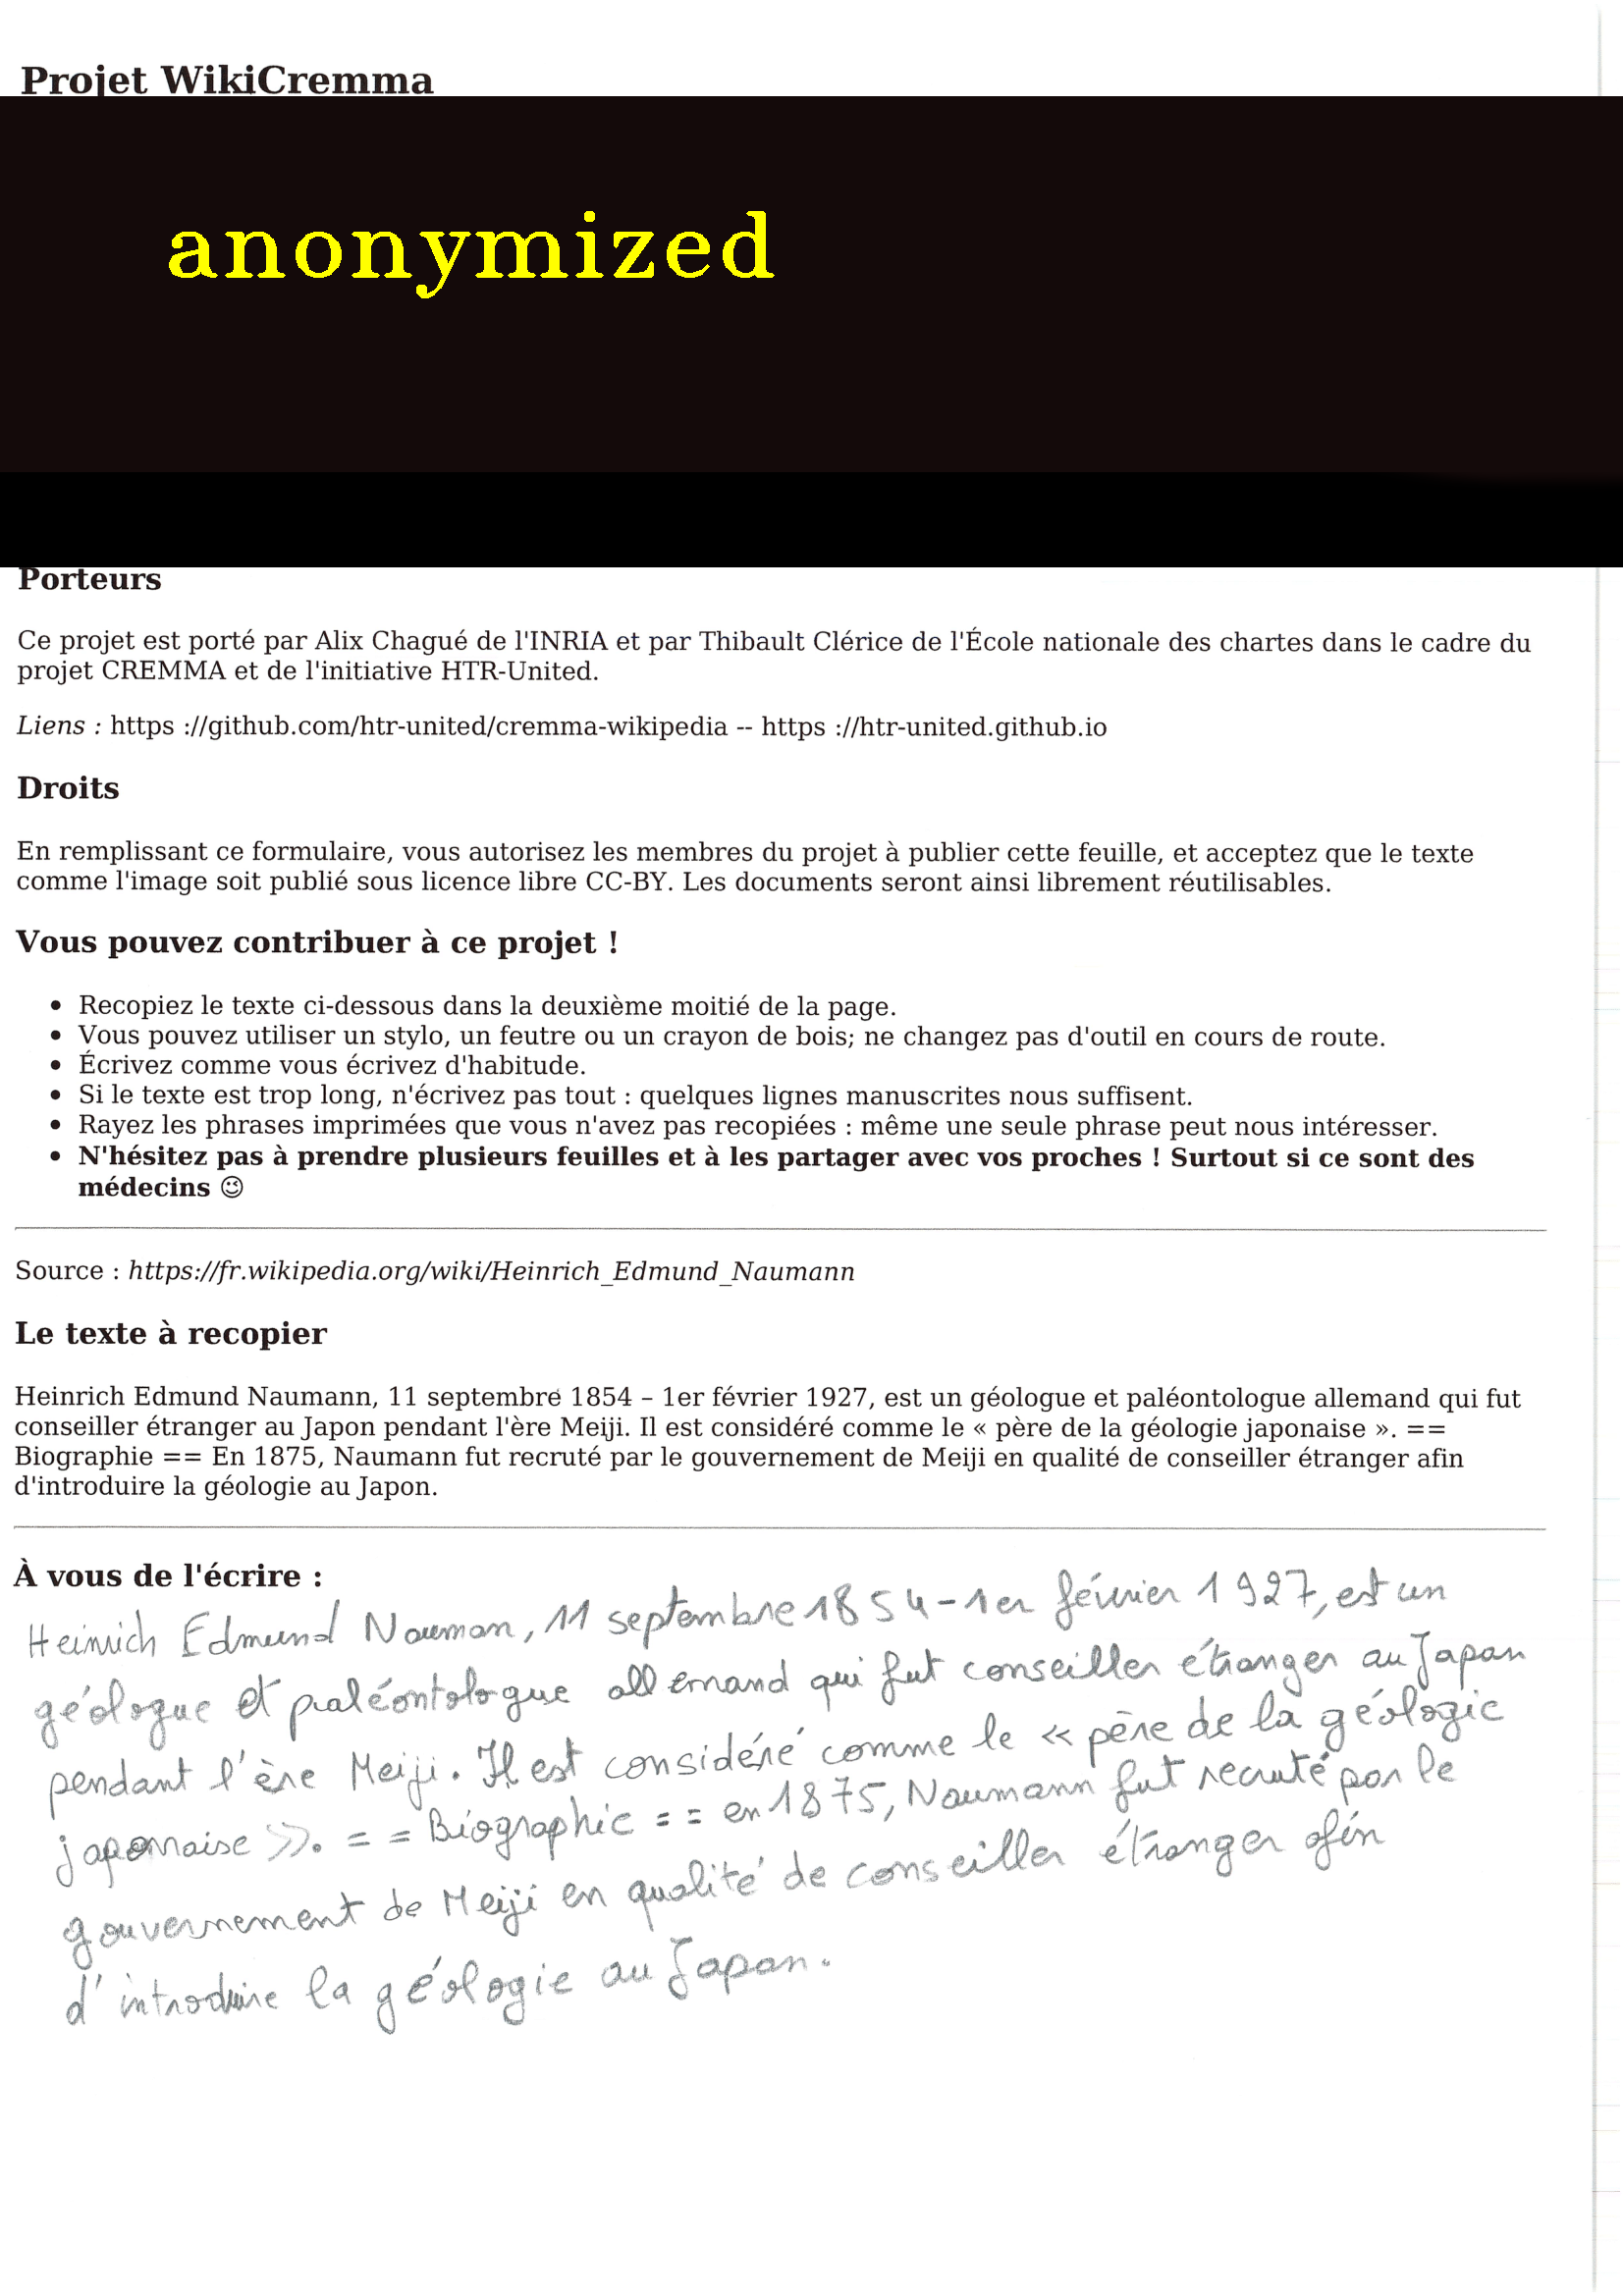 Projet WikiCremma
anonymized
Porteurs
Ce projet est porté par Alix Chagué de l'INRIA et par Thibault Clérice de l'École nationale des chartes dans le cadre du
projet CREMMA et de l'initiative HTR-United.
Liens : https ://github.com/htr-united/cremma-wikipedia -- https ://htr-united.github.io
Droits
En remplissant ce formulaire, vous autorisez les membres du projet à publier cette feuille, et acceptez que le texte
comme l'image soit publié sous licence libre CC-BY. Les documents seront ainsi librement réutilisables.
Vous pouvez contribuer à ce projet !
• Recopiez le texte ci-dessous dans la deuxième moitié de la page.
• Vous pouvez utiliser un stylo, un feutre ou un crayon de bois; ne changez pas d'outil en cours de route.
• Écrivez comme vous écrivez d'habitude.
• Si le texte est trop long, n'écrivez pas tout : quelques lignes manuscrites nous suffisent.
• Rayez les phrases imprimées que vous n'avez pas recopiées : même une seule phrase peut nous intéresser.
• N'hésitez pas à prendre plusieurs feuilles et à les partager avec vos proches ! Surtout si ce sont des
médecins ☺
Source : https://fr.wikipedia.org/wiki/Heinrich_Edmund_Naumann
Le texte à recopier
Heinrich Edmund Naumann, 11 septembre 1854 – 1er février 1927, est un géologue et paléontologue allemand qui fut
conseiller étranger au Japon pendant l'ère Meiji. Il est considéré comme le « père de la géologie japonaise ». ==
Biographie == En 1875, Naumann fut recruté par le gouvernement de Meiji en qualité de conseiller étranger afin
d'introduire la géologie au Japon.
À vous de l'écrire :
Heinrich Edmund Nauman, 11 septembre 1854 - 1er février 1927, est un
géologue et paléontologue allemand qui fut conseiller étranger au Japan
pendant l'ère Meiji. Il est considéré comme le « père de la géologie
japonaise ». == Biographie == en 1875, Naumann fut recruté par le
gouvernement de Meiji en qualité de conseiller étranger afin
d'introduire la géologie au Japon.